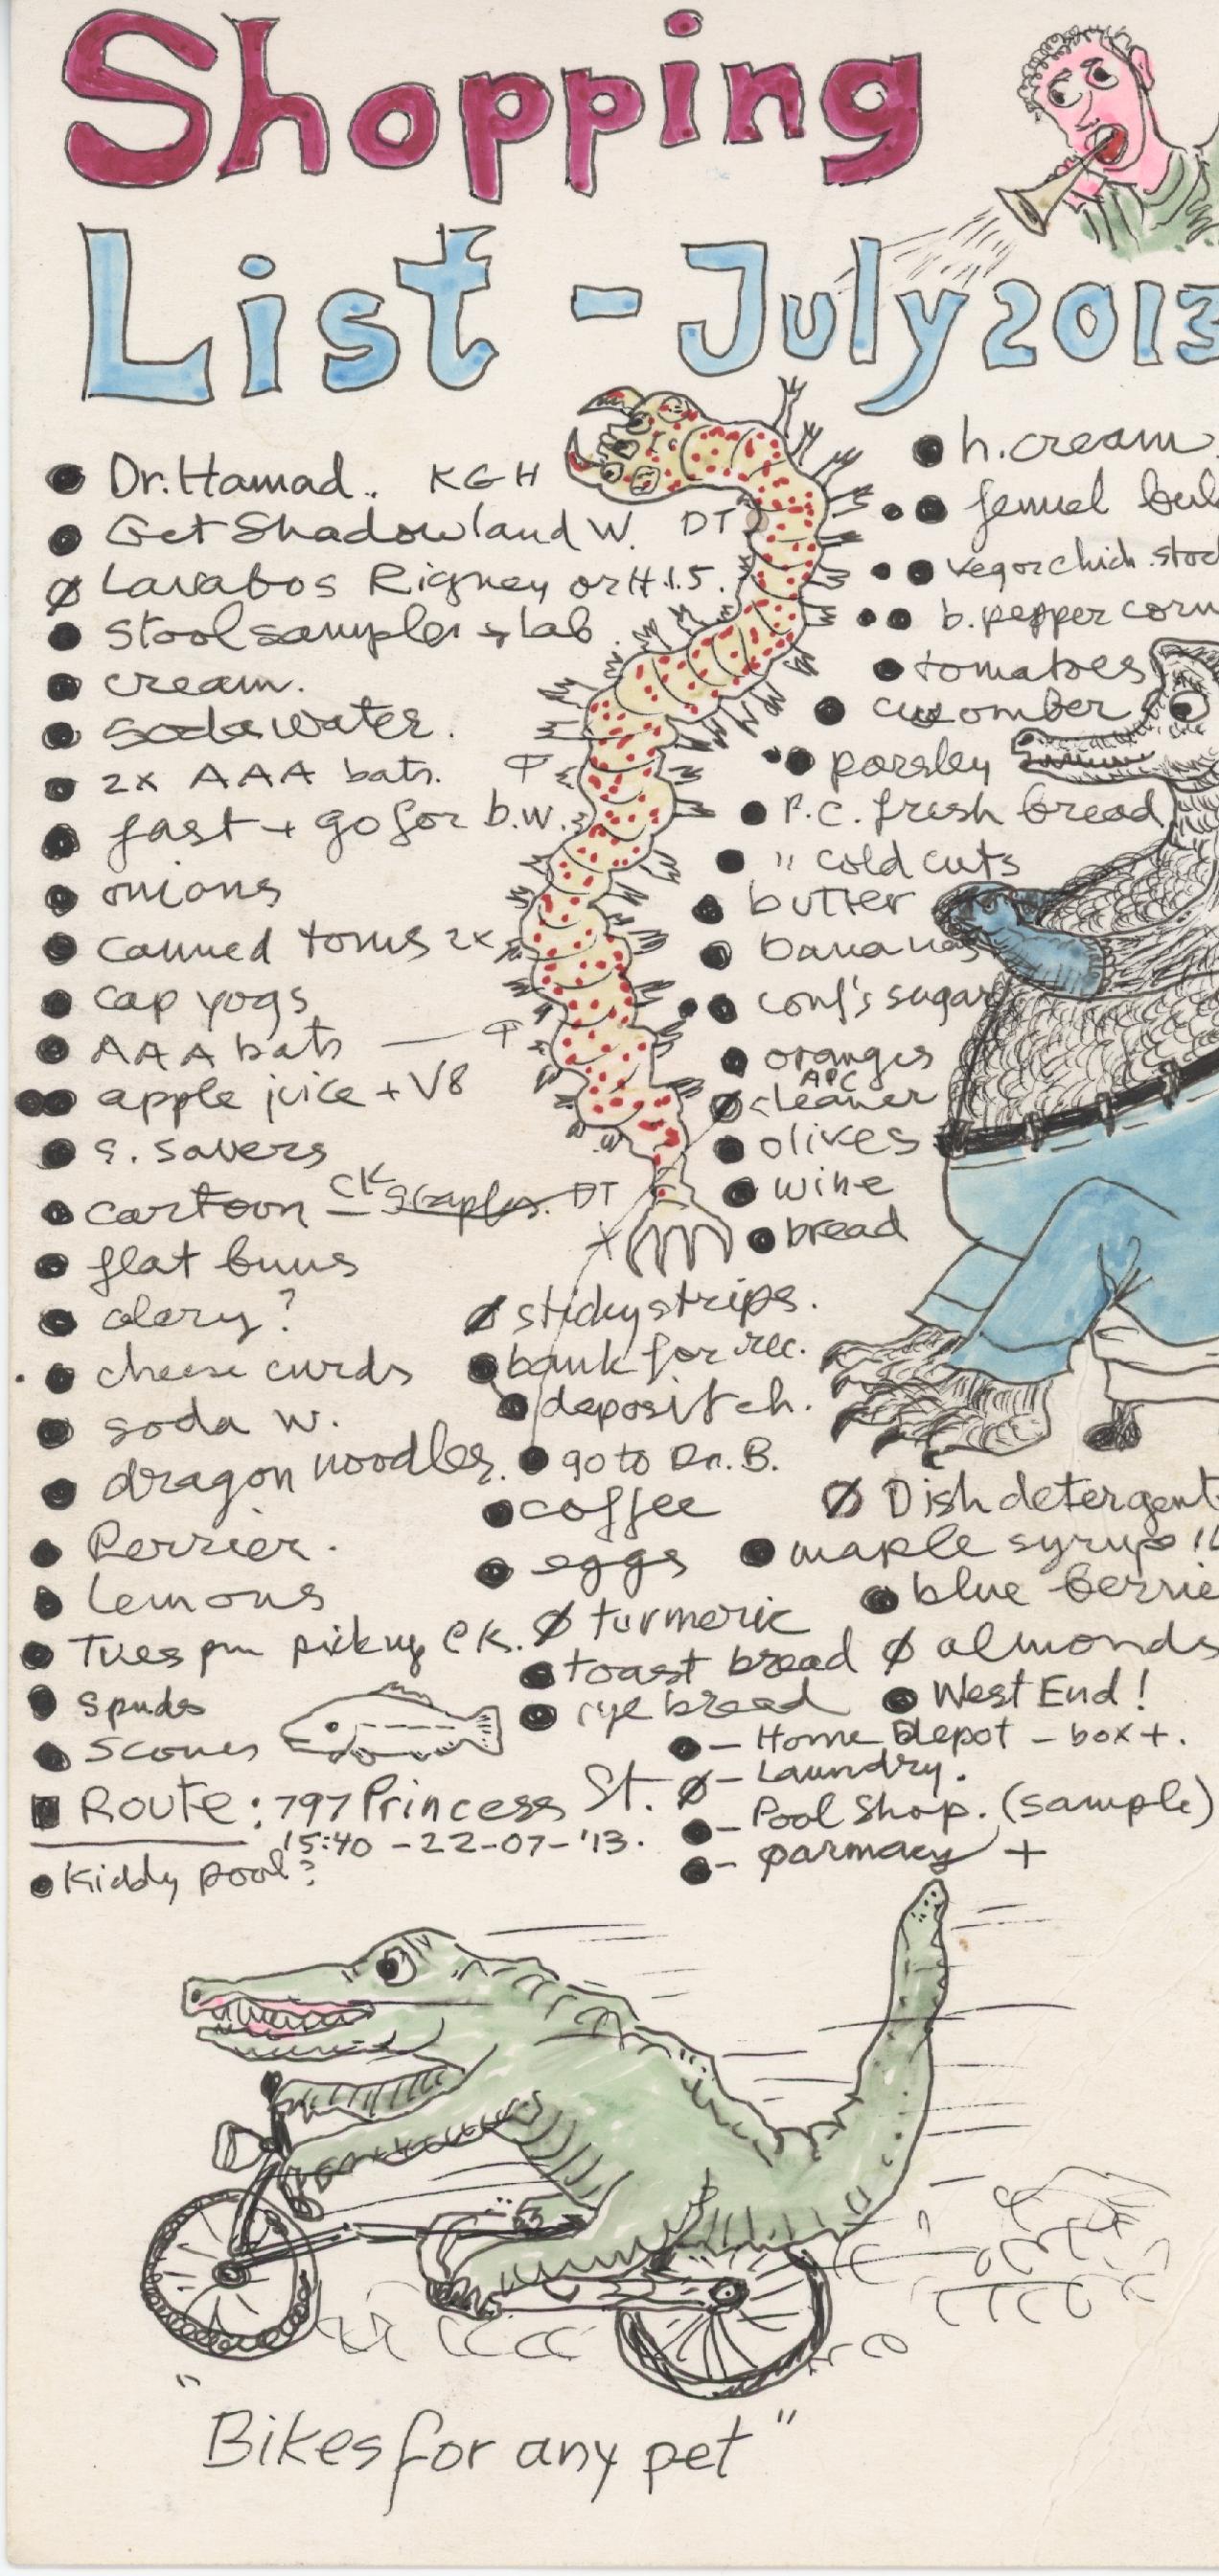 Shopping
List - July 2013
Dr. Hamad.. KGH
Get Shadowland W. DT
Lavabos Rigney or H 1.5.
Stool samples → Lab.
cream.
soda water.
2x AAA bats.
fast + go for b.w.
onions
canned toms 2x
cap yogs
AAA bats —
apple juice + V8
s. savers
cartoon — CK Staples. DT
flat buns
celery?
cheese curds
soda w.
dragon noodles.
Perrier.
Lemons
Tues pm pickup CK.
spuds
scones
Route: 797 Princess St.
15:40 - 22-07-'13.
Kiddy pool?
h. cream
fennel bul
veg or chick. stoc
b. pepper corn
tomatoes
cucomber
parsley
P.C. fresh bread
" cold cuts
butter
bananas
conf's sugar
oranges
APC
cleaner
olives
wine
bread
x
sticky strips.
bank for rec.
deposit ch.
go to Dr. B.
coffee
eggs
turmeric
toast bread
rye bread
Dish detergent
maple syrup !!
blue berrie
almonds
West End!
- Home Depot - box +.
- Laundry.
- Pool Shop. (sample)
- parmacy +
"Bikes for any pet"